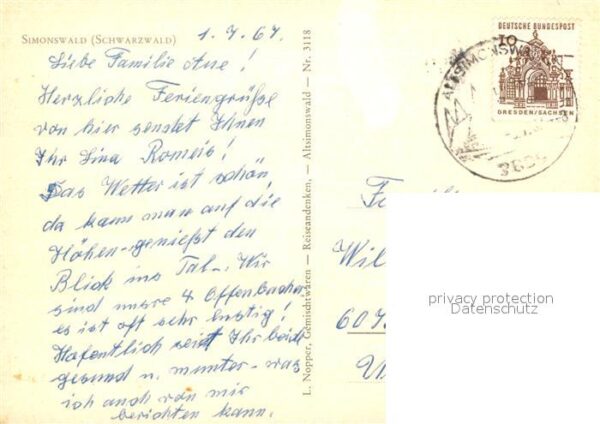 SIMONSWALD (SCHWARZWALD)
1.7.67.
Liebe Familie Aue!
Herzliche Feriengrüße
von hier sendet Ihnen
Ihr Lina Romeis!
Das Wetter ist schön,
da kann man auf die
Höhen - genießt den
Blick ins Tal -. Wir
sind unsre 4 Offenbacher,
es ist oft sehr lustig!
Hofentlich seid Ihr beide
gesund u. munter - was
ich auch von mir
berichten kann.
L. Nopper, Gemischtwaren — Reiseandenken, — Altsimonswald — Nr. 3118
DEUTSCHE BUNDESPOST
10
DRESDEN/SACHSEN
ALTSIMONSWALD
Wil
607
privacy protection
Datenschutz